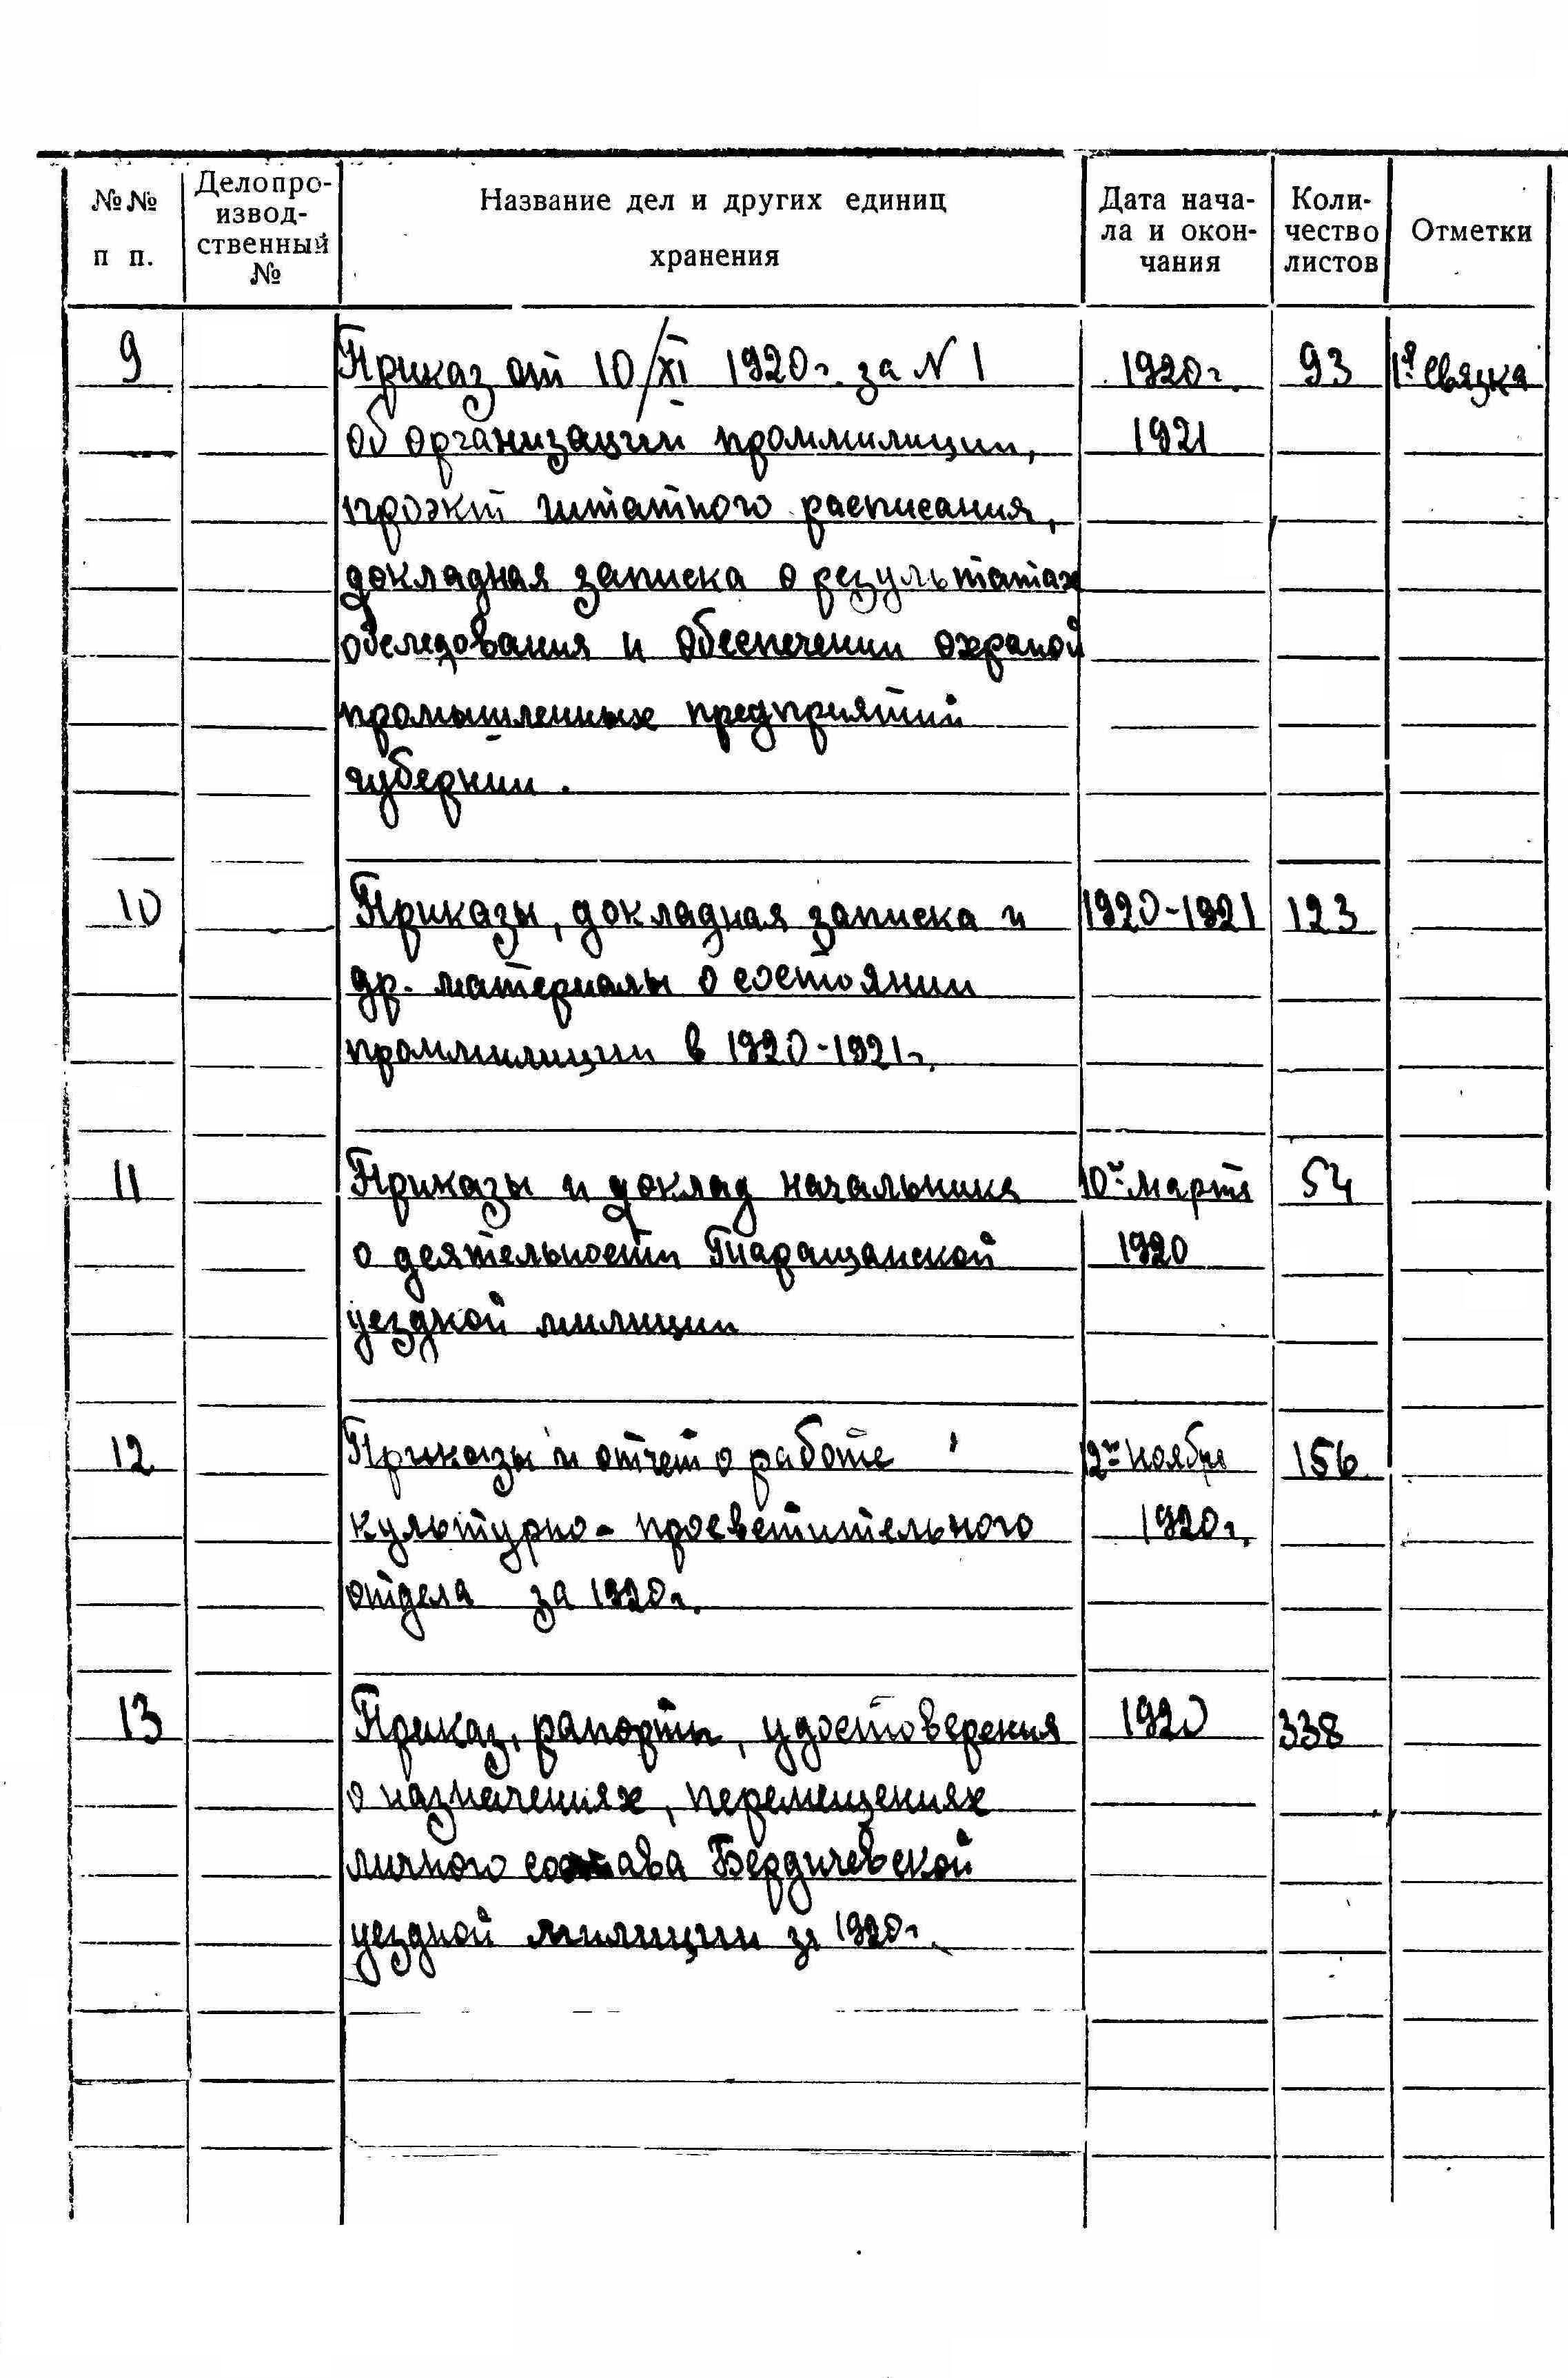 №№ п п. Делопро-извод-ственный № Название дел и других единиц хранения Дата нача-ла и окон-чания Коли-чество листов Отметки
9 Приказ от 10/XI 1920г. за N 1 1920г. 93 1я связка
об организации проммилиции, 1921
проэкт штатного расписания,
докладная записка о результатах
обследования и обеспечении охраной
промышленных предприятий
губернии.
10 Приказы, докладная записка и 1920-1921 123
др. материалы о состоянии
проммилиции в 1920-1921г.
11 Приказы и доклад начальника 10й марта 54
о деятельности Таращанской 1920
уездной милиции
12 Приказы и отчет о работе ноября 156
культурно-просветительного 1920г.
отдела за 1920г.
13 Приказ, рапорты, удостоверения 1920 338
о назначениях, перемещениях
личного состава Бердичевской
уездной милиции за 1920г.